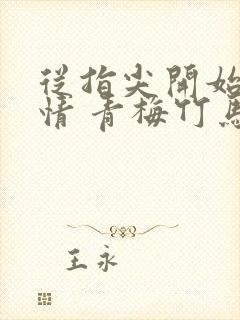 從指尖開始
情 青梅竹馬
王永